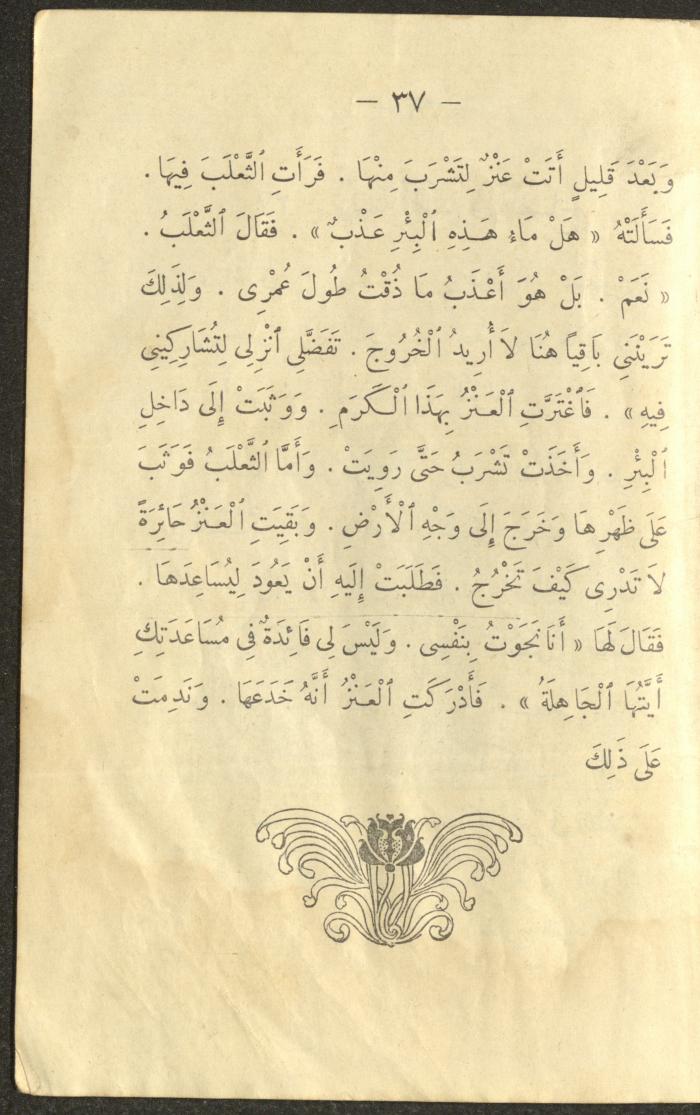 — ٣٧ —
وَبَعْدَ قَلِيلٍ أَتَتْ عَنْزٌ لِتَشْرَبَ مِنْهَا . فَرَأَتِ ٱلثَّعْلَبَ فِيهَا .
فَسَأَلَتْهُ « هَلْ مَاءُ هَذِهِ ٱلْبِئْرِ عَذْبٌ » . فَقَالَ ٱلثَّعْلَبُ .
« نَعَمْ . بَلْ هُوَ أَعْذَبُ مَا ذُقْتُ طُولَ عُمْرِى . وَلِذَلِكَ
تَرَيْنَنِي بَاقِياً هُنَا لاَ أُرِيدُ ٱلْخُرُوجَ . تَفَضَّلِى ٱنْزِلِى لِتُشَارِكِينِى
فِيهِ » . فَٱغْتَرَّتِ ٱلْعَنْزُ بِهَذَا ٱلْكَرَمِ . وَوَثَبَتْ إِلَى دَاخِلِ
ٱلْبِئْرِ . وَأَخَذَتْ تَشْرَبُ حَتَّى رَوِيَتْ . وَأَمَّا ٱلثَّعْلَبُ فَوَثَبَ
عَلَى ظَهْرِهَا وَخَرَجَ إِلَى وَجْهِ ٱلْأَرْضِ . وَبَقِيَتِ ٱلْعَنْزُ حَائِرَةً
لاَ تَدْرِى كَيْفَ تَخْرُجُ . فَطَلَبَتْ إِلَيهِ أَنْ يَعُودَ لِيُسَاعِدَهَا .
فَقَالَ لَهَا « أَنَا نَجَوْتُ بِنَفْسِى . وَلَيْسَ لِى فَائِدَةٌ فِى مُسَاعَدَتِكِ
أَيَّتُهَا ٱلْجَاهِلَةُ » . فَأَدْرَكَتِ ٱلْعَنْزُ أَنَّهُ خَدَعَهَا . وَنَدِمَتْ
عَلَى ذَلِكَ